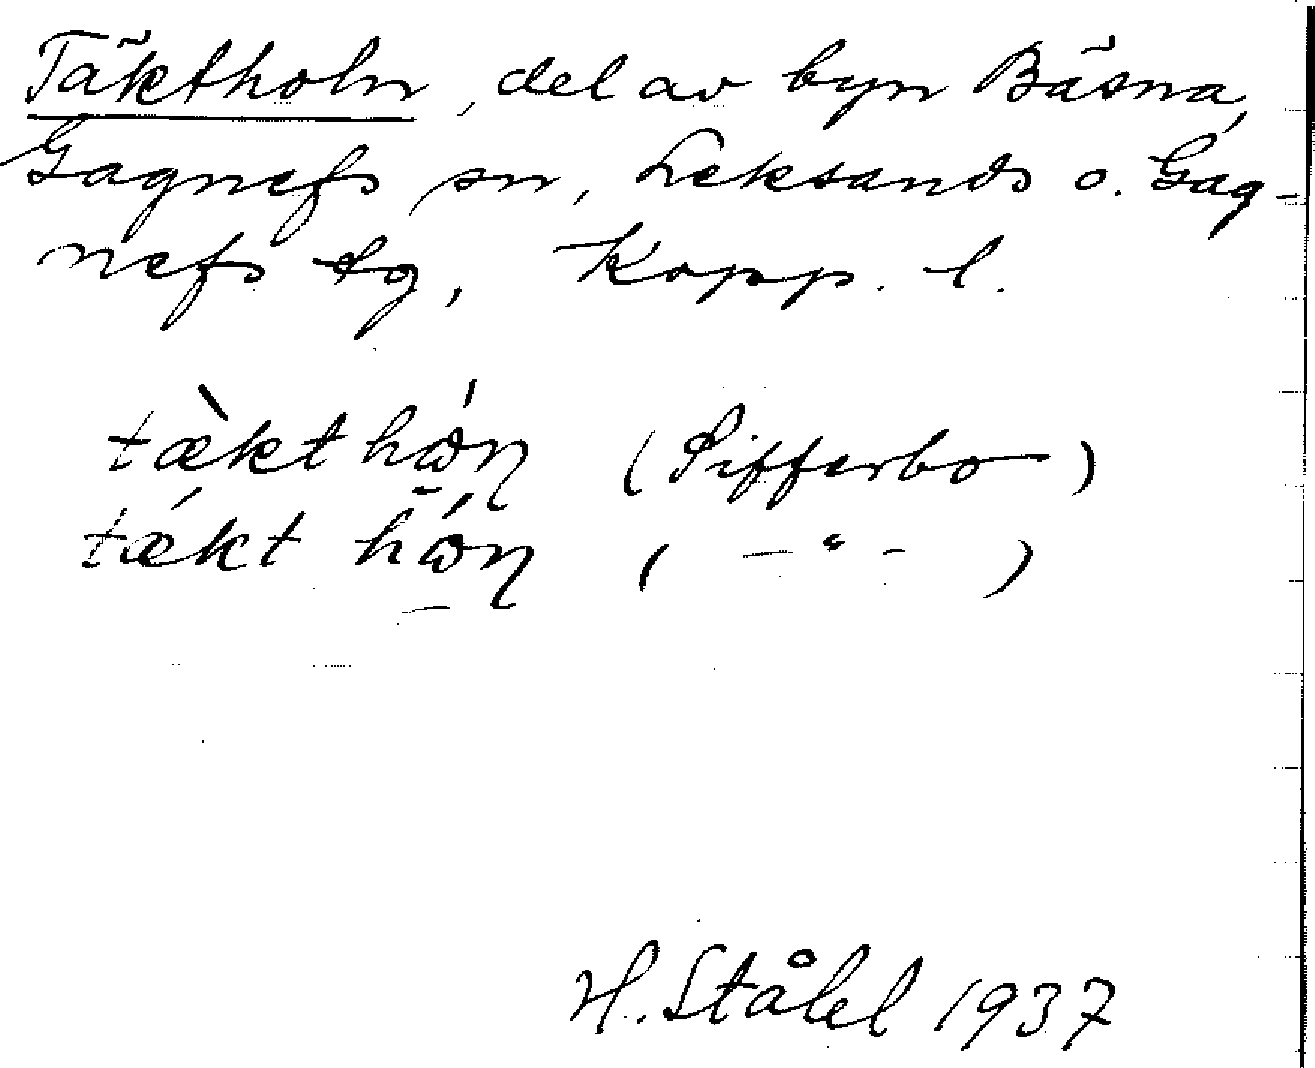 Täktholn, del av byn Bäsna,
Gagnefs sn, Leksands o. Gag-
nefs tg, Kopp. l.
(Pifferbo)
( – " – )
H. Ståhl 1937